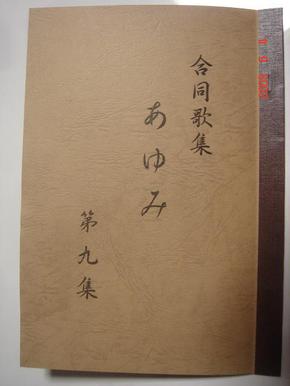 合同歌集
あゆみ
第九集